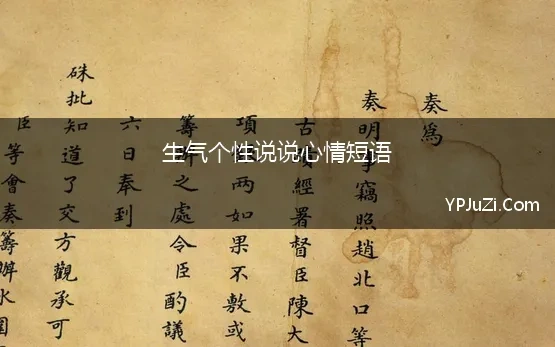 生气个性说说心情短语
YPJuZi.Com
奏為
奏明事竊照趙北口等
古經署督臣陳大
項两如果不敷或
籌之處令臣酌議
六日奉到
硃批知道了交方觀承可
臣等會奏籌辦水圍